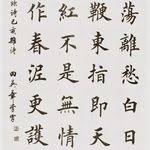 蕩離愁白日
鞭東指即天
紅不是無情
作春泥更護
詩己亥雜詩 田英章書